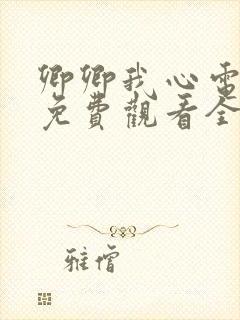 卿卿我心電
免費觀看全
雅僧